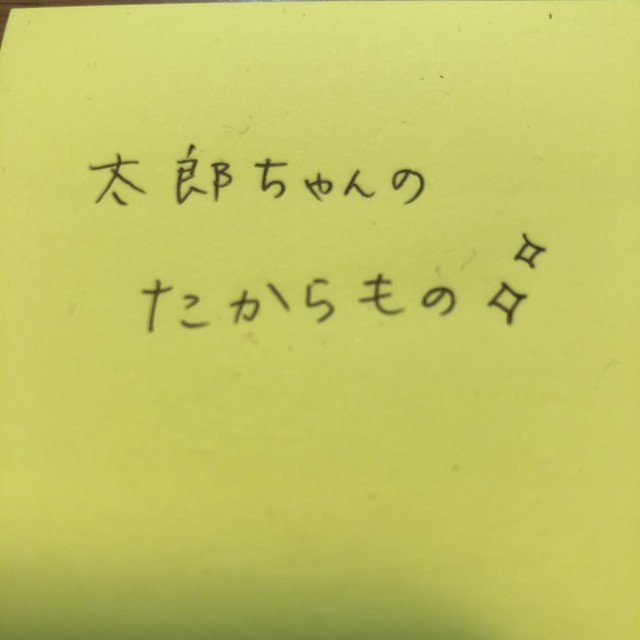 太郎ちゃんの
たからもの